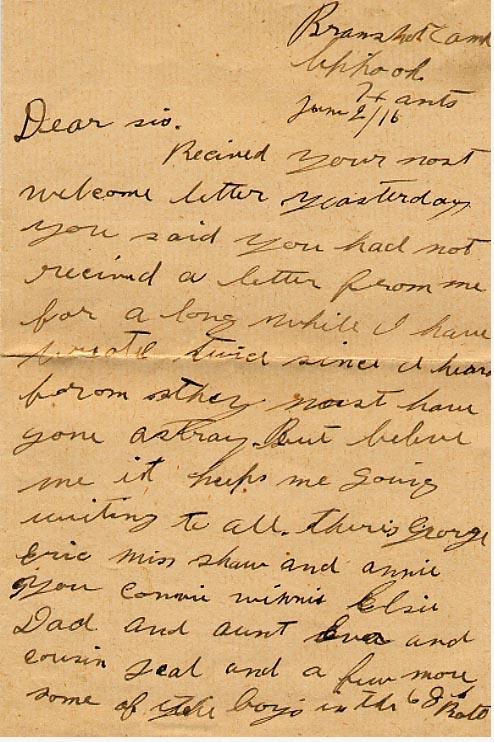 Bramshot Camp
Liphook
Hants
June 2/16
Dear sis.
Recived your most
welcome letter yeasterday
you said you had not
recived a letter from me
for a long while I have
wrote twice since I hear
from they must have
gone astray. But belive
me it keeps me going
writing to all. theris George
Eric miss shaw and annie
you connie winnie Elsie
Dad and aunt Eva and
cousin and a few more
some of the boys in the 68th Batt